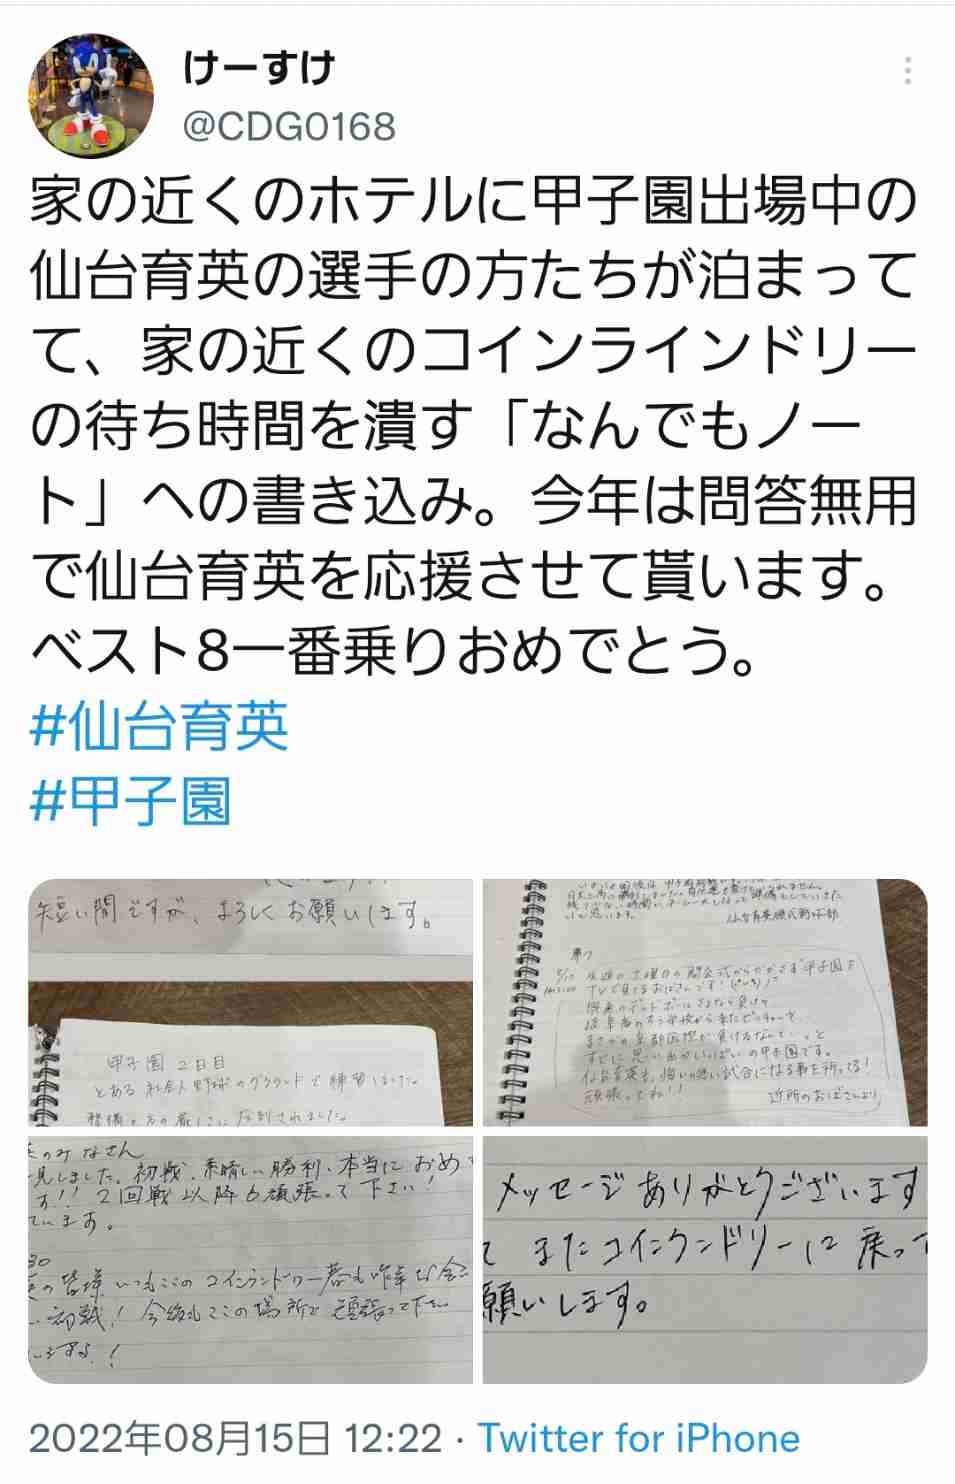 けーすけ
@CDG0168
家の近くのホテルに甲子園出場中の
仙台育英の選手の方たちが泊まって
て、家の近くのコインラインドリー
の待ち時間を潰す「なんでもノー
ト」への書き込み。今年は問答無用
で仙台育英を応援させて貰います。
ベスト8一番乗りおめでとう。
#仙台育英
#甲子園
短い間ですが、よろしくお願いします。
甲子園 2日目
とある社会人野球のグラウンドで練習しました。
仙台育英硬式野球部
頑張ってね!!
近所のおばさんより
のみなさん
見しました。初戦、素晴しい勝利、本当におめ
す!! 2回戦以降も頑張って下さい!
ています。
30
の皆様 いつもこのコインランドリー
初戦! 今後もこの場所で 頑張って下さい
メッセージありがとうございます
て またコインランドリーに戻って
願いします。
2022年08月15日 12:22 · Twitter for iPhone